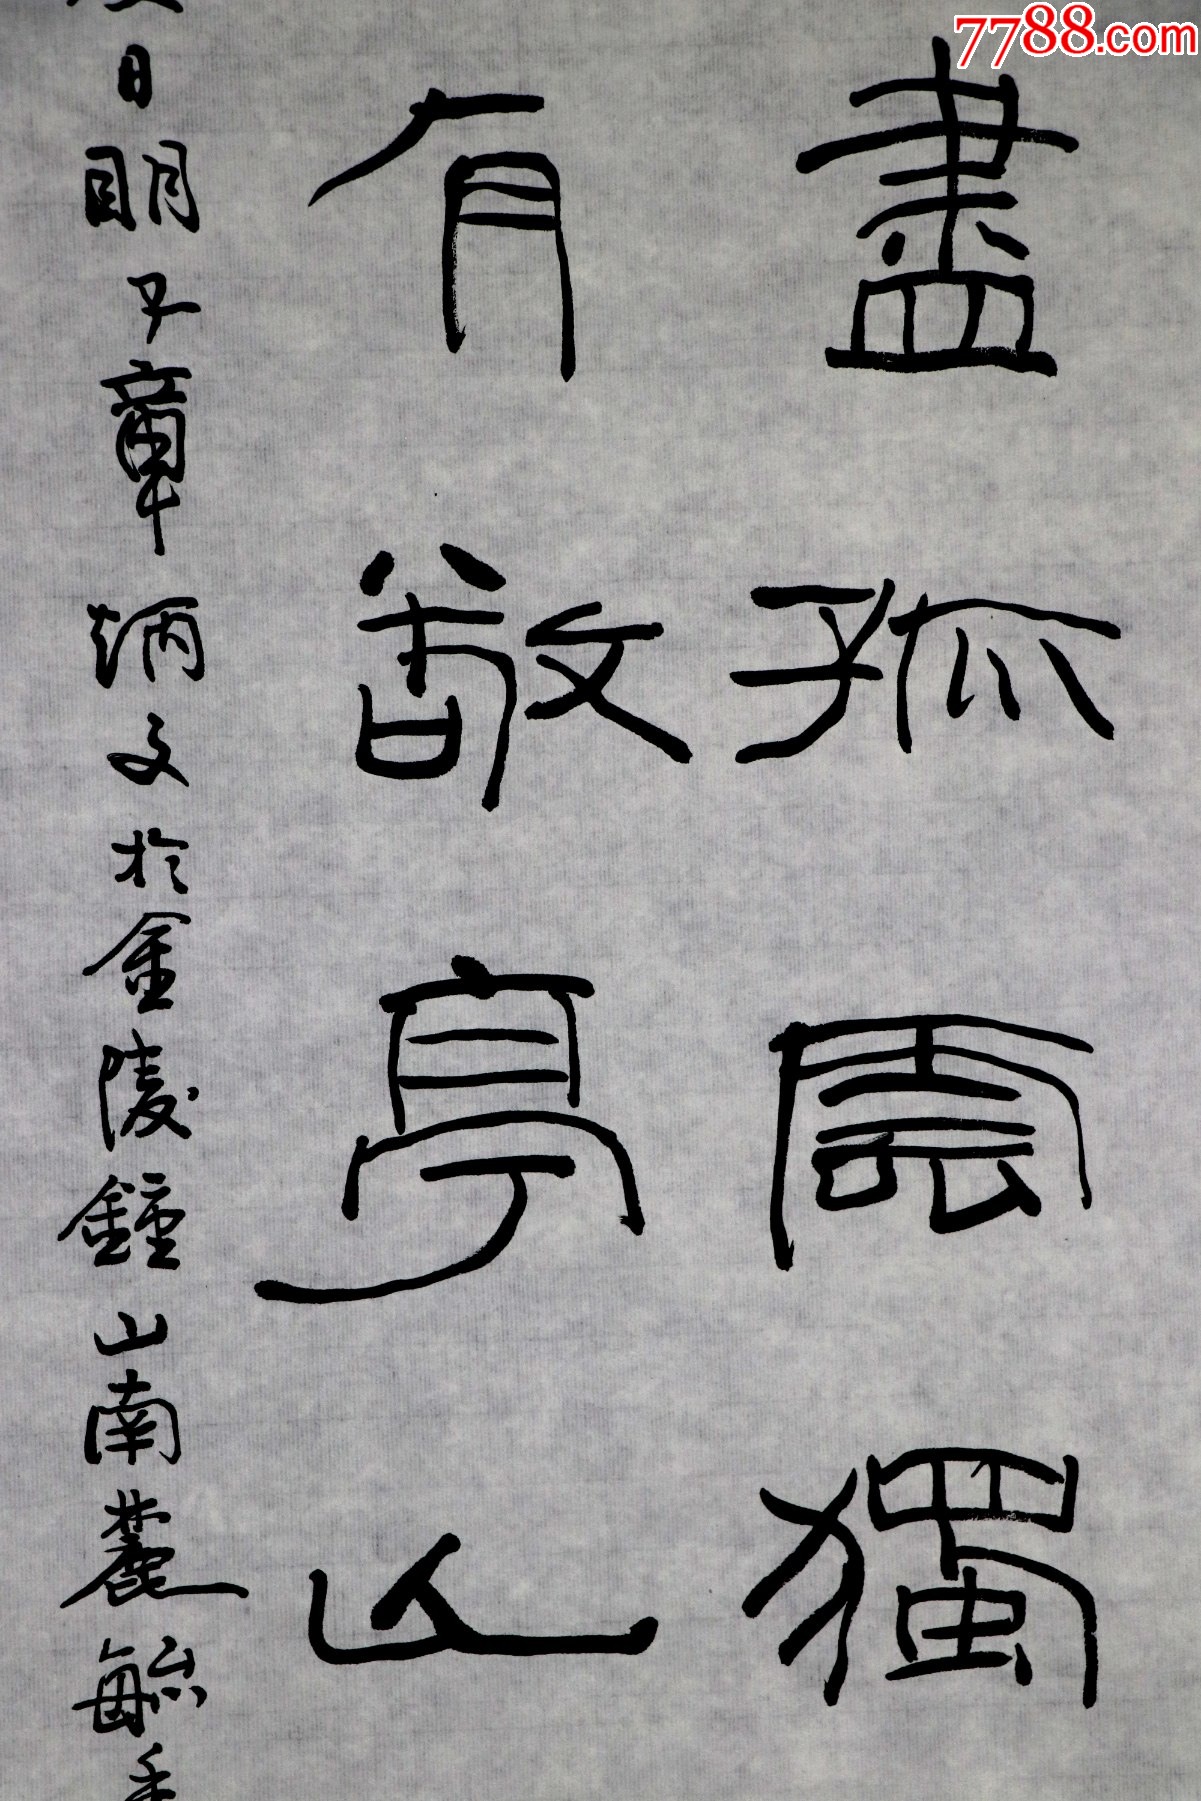 7788.com
盡孤雲獨
有敬亭山
日眀子章炳文於金陵鐘山南麓毓